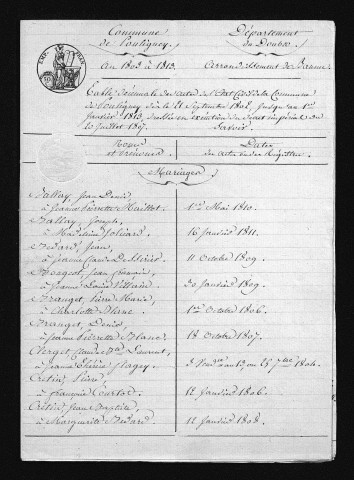 Commune
de Pouligney
An 1803 à 1813.
Département
du Doubs.
Arrondissement de Baume
Table décennale des actes de l'Etat Civil de la Commune
de Pouligney dès le 21 Septembre 1802, jusqu'au 1er
Janvier 1813, dressée en exécution du décret impérial du
20 Juillet 1807.
Savoir
Noms
et Prénoms
Dates
des actes sur les Registres
Mariages
Ballay, Jean Denis
à Jeanne Pierrette Maillot. 1er Mai 1810.
Ballay, Joseph,
à Madelaine Joliard. 16 Janvier 1811.
Bedard, Jean,
à Jeanne Claude 11 Octobre 1809.
Bocquet, Jean François,
à Jeanne Louise Villain. 30 Janvier 1809.
Franget, Pierre Marie,
à Charlotte Blanc. 1er Octobre 1806.
Franget, Denis,
à Jeanne Pierrette Blanc. 18 Octobre 1807.
Clerget, Claude Laurent,
à Jeanne Thérèse Flagey. an 13 ou 25 7bre 1804.
Cretin, Pierre,
à Françoise Courtot. 12 Janvier 1806.
Cretin, Jean Baptiste,
à Marguerite Bedard. 12 Janvier 1808.